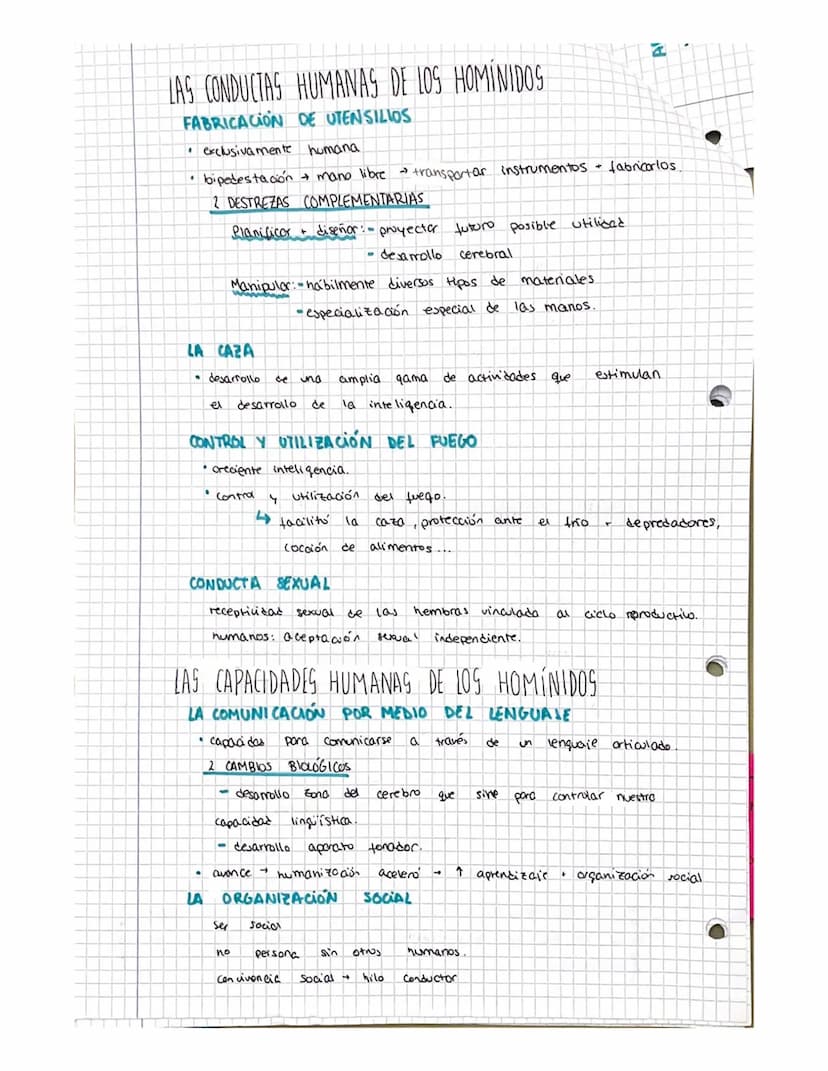 LAS CONDUCTAS HUMANAS DE LOS HOMÍNIDOS
FABRICACIÓN DE UTENSILIOS
• exclusivamente humana
• bipedestación → mano libre → transportar instrumentos + fabricarlos.
2 DESTREZAS COMPLEMENTARIAS
Planificar + diseñar: - proyectar futuro posible utilidad
- desarrollo cerebral
Manipular: - hábilmente diversos tipos de materiales
- especialización especial de las manos.
LA CAZA
• desarrollo de una amplia gama de actividades que estimulan
el desarrollo de la inteligencia.
CONTROL Y UTILIZACIÓN DEL FUEGO
• creciente inteligencia.
• control y utilización del fuego.
↳ facilitó la caza, protección ante el frío + depredadores,
cocción de alimentos...
CONDUCTA SEXUAL
receptividad sexual de las hembras vinculada al ciclo reproductivo.
humanos: aceptación sexual independiente.
LAS CAPACIDADES HUMANAS DE LOS HOMÍNIDOS
LA COMUNICACIÓN POR MEDIO DEL LENGUAJE
• capacidad para comunicarse a través de un lenguaje articulado.
2 CAMBIOS BIOLÓGICOS
- desarrollo zona del cerebro que sirve para controlar nuestra
capacidad lingüística.
- desarrollo aparato fonador.
• avance → humanización aceleró → ↑ aprendizaje + organización social
LA ORGANIZACIÓN SOCIAL
ser social
no persona sin otros humanos.
convivencia social → hilo conductor